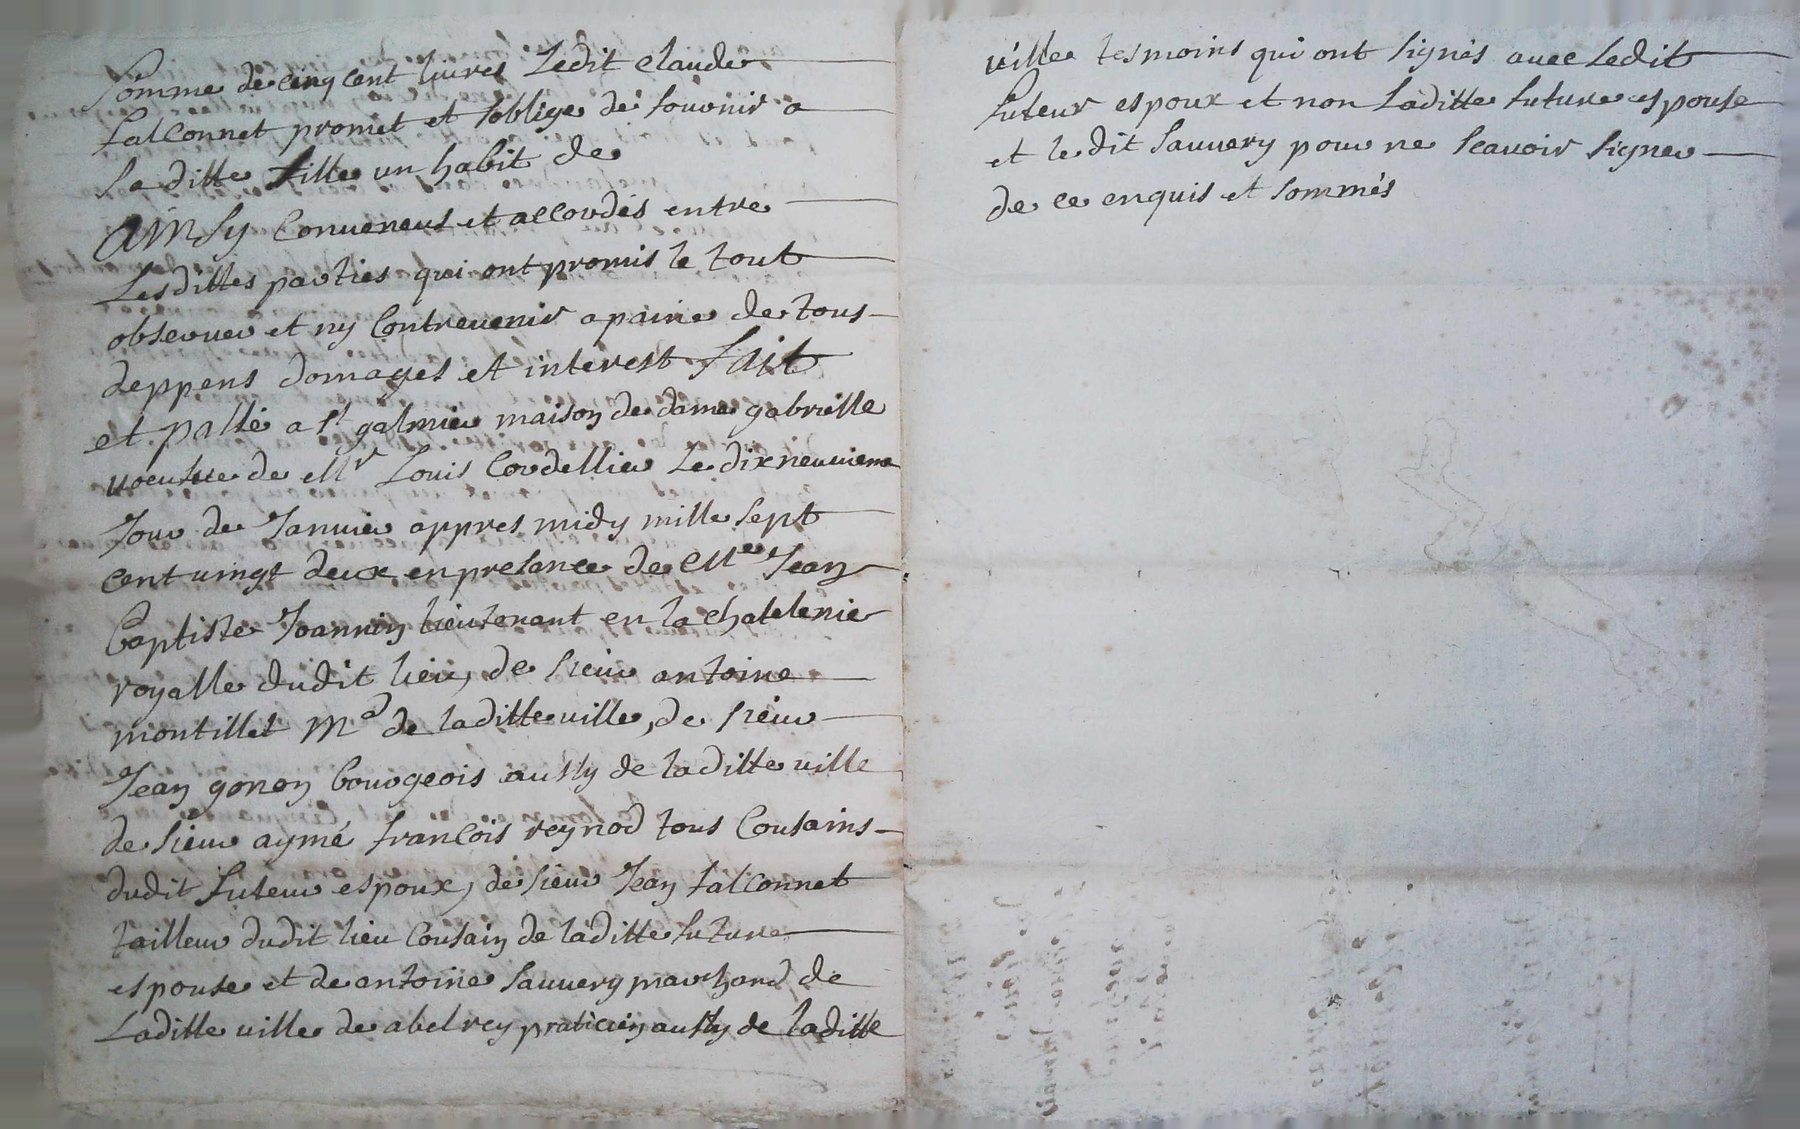 Somme de cinq cent livres Ledit Claude
falconnet promet et soblige de fournir a
sa ditte fille un habit de
Ainsy Conveneus et accordés entre
Lesdittes parties qui ont promis le tout
observer et ny Contrevenir a paine de tous
deppens domages et interest fait
et passé a st galmier maison de dame gabrielle
voeufve de Mr Louis Cordellier Le dixneuvieme
Jour de Janvier appres midy mille sept
cent vingt deux en presance de Me Jean
Baptiste Joannin lieutenant en la chatelenie
royalle dudit lieu, de sieur antoine
montillet Md de laditte ville, de sieur
Jean gonon bourgeois aussy de laditte ville
de sieur aymé francois reynod tous Cousains
dudit futeur espoux, de sieur Jean falconnet
tailleur dudit lieu Cousain de laditte future
espouse et de antoine sauvery marchand de
Laditte ville de abel rey praticien aussy de laditte
ville tesmoins qui ont signés avec Ledit
futeur espoux et non Laditte future espouse
et ledit sauvery pour ne scavoir signer
de ce enquis et sommés